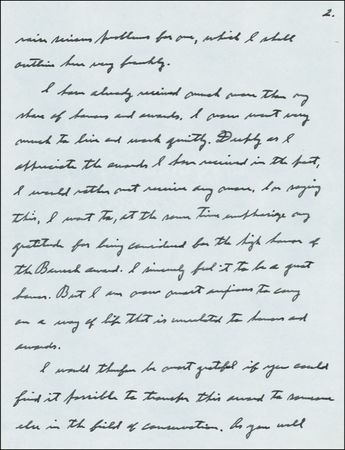 2.
raises serious problems for me, which I shall
outline here very frankly.
I have already received much more than my
share of honors and awards. I now want very
much to live and work quietly. Deeply as I
appreciate the awards I have received in the past,
I would rather not receive any more. In saying
this, I want to, at the same time emphasize my
gratitude for being considered for the high honor of
the Baruch award. I sincerely feel it to be a great
honor. But I am now most anxious to carry
on a way of life that is unrelated to honors and
awards.
I would therefore be most grateful if you could
find it possible to transfer this award to someone
else in the field of conservation. As you well